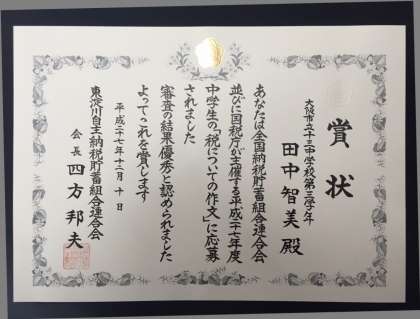 賞状
大阪市立十三中学校第三学年
田中智美殿
あなたは全国納税貯蓄組合連合会
並びに国税庁が主催する平成二十七年度
中学生の「税についての作文」に応募
されました
審査の結果優秀と認められました
よってこれを賞します
平成二十七年十二月十日
東淀川自主納税貯蓄組合連合会
会長 四方邦夫